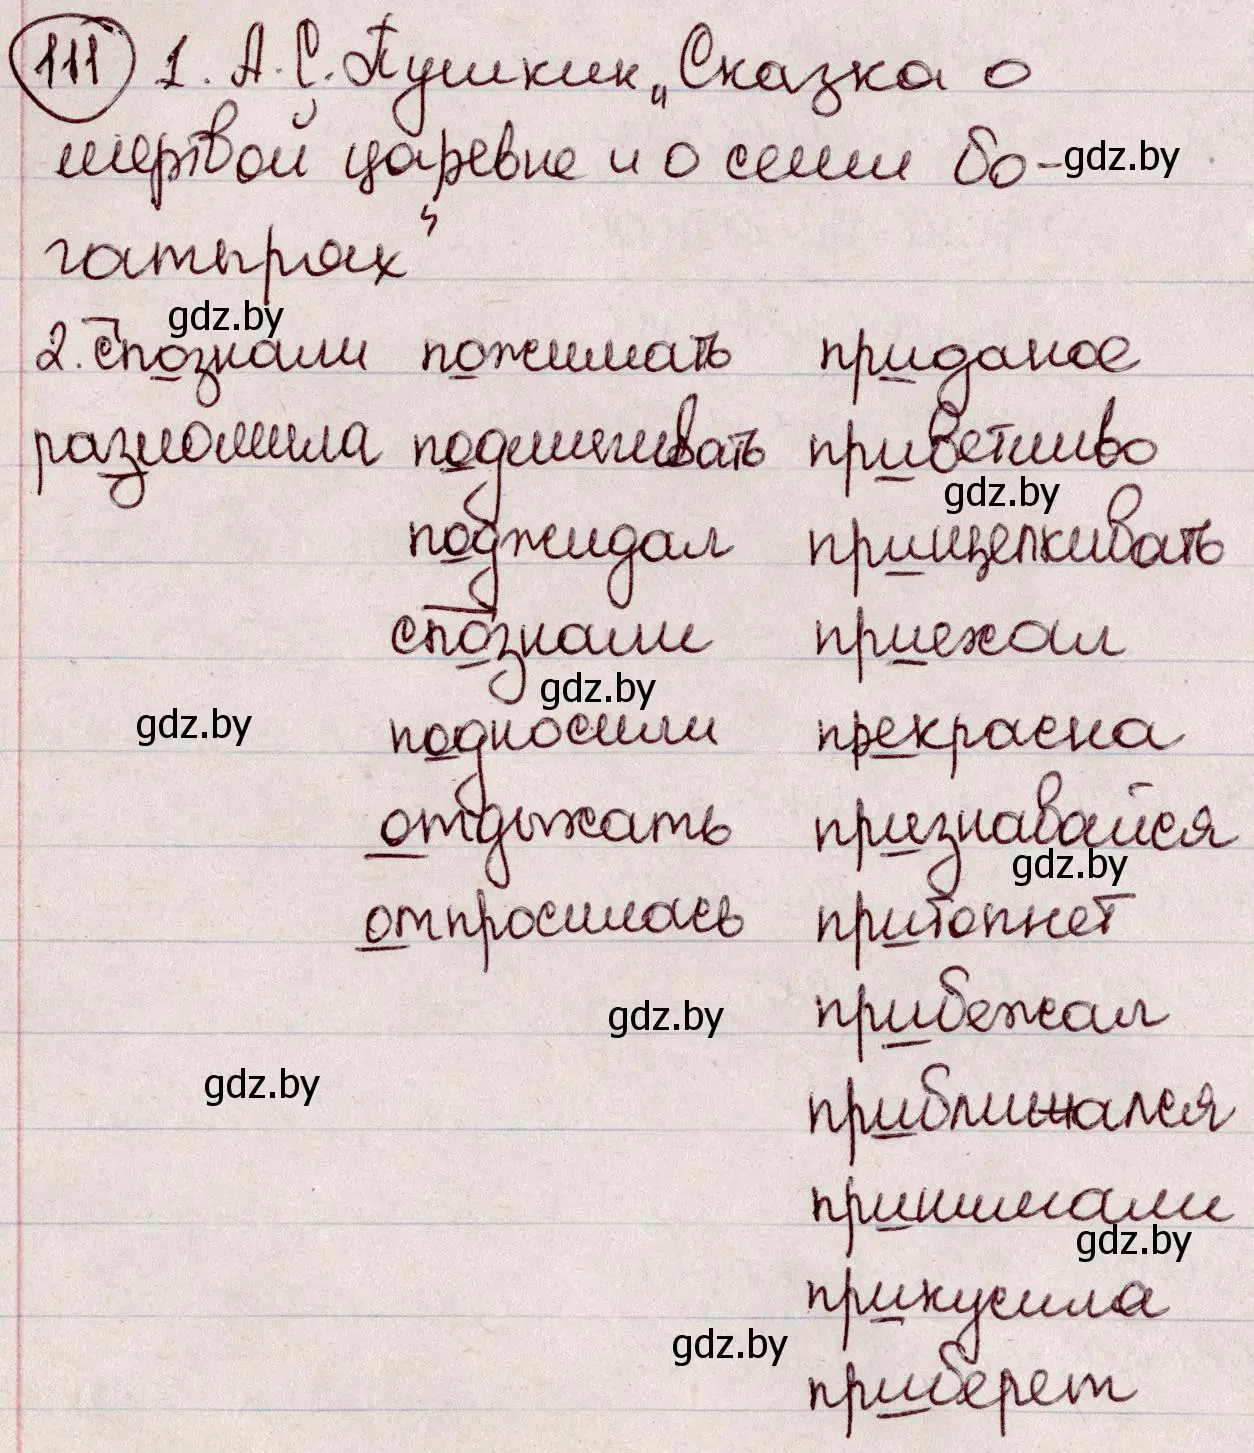 111 1. А. С. Пушкин „Сказка о
мертвой царевне и о семи бо-
gdz.by
гатырях“
gdz.by
2. спознали пожимать приданое
разломила подмигивать приветливо
gdz.by
поджидал прищелкивать
спознали приехал
gdz.by
gdz.by
подносили прекрасна
отдыхать признавайся
gdz.by
отпросилась притопнет
gdz.by
прибежал
gdz.by
приближался
принимали
gdz.by
прикусила
gdz.by
приберет